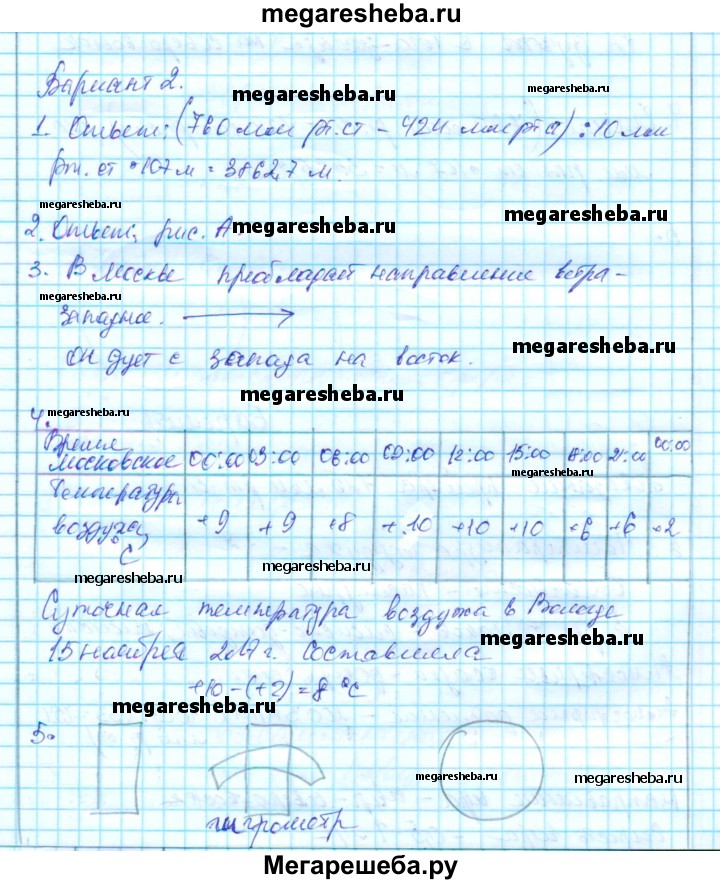 megaresheba.ru
Вариант 2.
megaresheba.ru
megaresheba.ru
1. Ответ: (760 мм рт.ст - 424 мм рт с) : 10 мм
рт. ст * 107 м = 3862,7 м.
megaresheba.ru
megaresheba.ru
2. Ответ: рис. А.
megaresheba.ru
3. В Москве преобладает направление ветра -
megaresheba.ru
megaresheba.ru
западное.
Он дует с запада на восток.
megaresheba.ru
megaresheba.ru
4.
megaresheba.ru
Время московское 00:00 03:00 06:00 09:00 12:00 15:00 18:00 21:00 00:00
megaresheba.ru
Температура воздуха, °С +9 +9 +8 +10 +10 +10 +6 +6 +2
megaresheba.ru
megaresheba.ru
Суточная температура воздуха в Вологде
megaresheba.ru
15 ноября 2017 г. составила
+10-(+2)=8 °С
megaresheba.ru
5.
megaresheba.ru
megaresheba.ru
гигрометр
Мегарешеба.ру